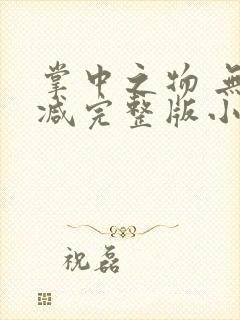 掌中之物 無
减完整版小
祝磊